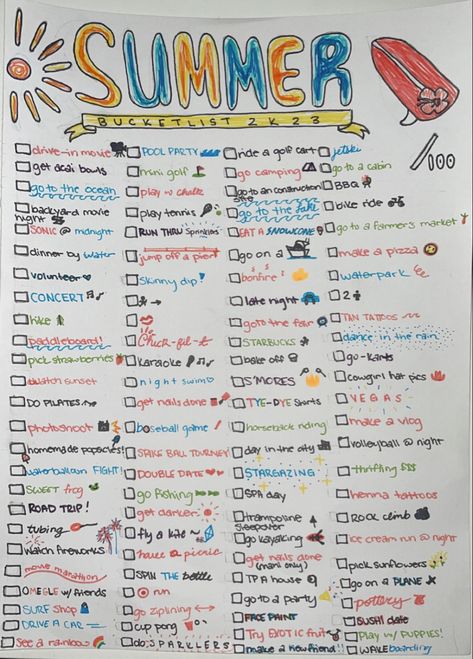 SUMMER
BUCKETLIST 2K23
/100
drive-in movie
get acai bowls
go to the ocean
backyard movie night
SONIC @ midnight
dinner by water
volunteer
CONCERT
hike
paddleboard!
pick strawberries
watch sunset
DO PILATES
photoshoot
homemade popsicles!
waterballoon FIGHT!
SWEET frog
ROAD TRIP!
tubing
watch fireworks
movie marathon
OMEGLE w/ friends
SURF Shop
DRIVE A CAR
see a rainbow
POOL PARTY
mini golf
play w/ chalk
play tennis
RUN THRU Sprinklers
jump off a pier
skinny dip!
Chick-fil-a
karaoke
night swim
get nails done
baseball game!
SPIKE BALL TOURNEY
DOUBLE DATE
go fishing
get darker
fly a kite
have a picnic
SPIN THE bottle
run
go ziplining
cup pong
do SPARKLERS
ride a golf cart
go camping
go to an construction site
go to the lake
EAT A SNOWCONE
go on a
bonfire!
late night
go to the fair
STARBUCKS
bake off
S'MORES
TYE-DYE shirts
horseback riding
day in the city
STARGAZING
SPA day
trampoline sleepover
go kayaking
get nails done (mani only)
TP A house
go to a party
FACE PAINT
Try EXOTIC fruit
make a new friend!
jetski
go to a cabin
BBQ
bike ride
go to a farmer's market
make a pizza
waterpark
2
TAN TATTOOS
dance in the rain
go-karts
cowgirl hat pics
VEGAS
make a vlog
volleyball @ night
thrifting $$$
henna tattoos
ROCK climb
ice cream run @ night
pick sunflowers
go on a PLANE
pottery
SUSHI date
Play w/ PUPPIES!
WAKEboarding